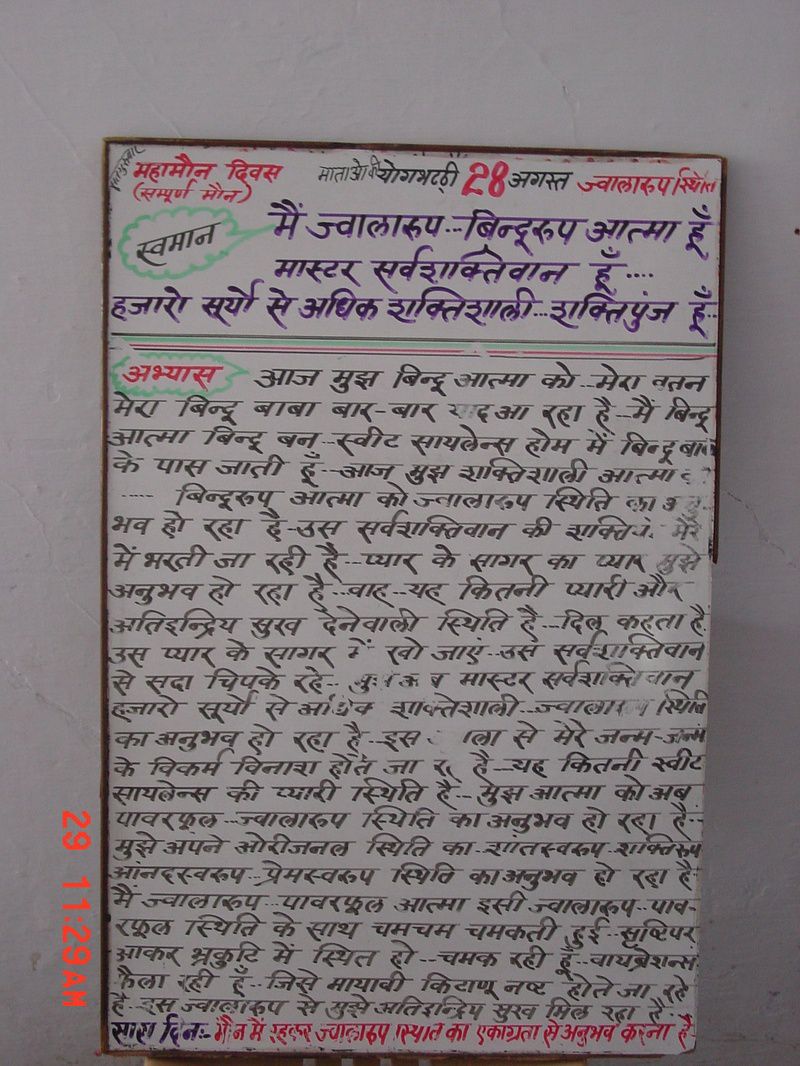 महामौन दिवस माताओ की योगभट्ठी 28 अगस्त ज्वालारुप स्थिति
(सम्पूर्ण मौन)
स्वमान मैं ज्वालारुप...बिन्दूरुप आत्मा हूँ
मास्टर सर्वशक्तिवान हूँ....
हजारो सूर्यो से अधिक शक्तिशाली...शक्तिपुंज हूँ..
अभ्यास आज मुझ बिन्दू आत्मा को...मेरा वतन
मेरा बिन्दू बाबा बार-बार याद आ रहा है...मैं बिन्दू
आत्मा बिन्दू बन...स्वीट सायलेन्स होम में बिन्दू बाबा
के पास जाती हूँ...आज मुझ शक्तिशाली आत्मा
..... बिन्दूरुप आत्मा को ज्वालारुप स्थिति का अनु
भव हो रहा है-उस सर्वशक्तिवान की शक्तियां मेरे
में भरती जा रही है...प्यार के सागर का प्यार मुझे
अनुभव हो रहा है...वाह...यह कितनी प्यारी और
अतिइन्द्रिय सुख देनेवाली स्थिति है...दिल कहता है.
उस प्यार के सागर में खो जाएं...उस सर्वशक्तिवान
से सदा चिपके रहे... मास्टर सर्वशक्तिवान
हजारो सूर्यो से अधिक शक्तिशाली...ज्वालारुप स्थिति
का अनुभव हो रहा है...इस से मेरे जन्म-जन्म
के विकर्म विनाश होते जा रहे है...यह कितनी स्वीट
सायलेन्स की प्यारी स्थिति है...मुझ आत्मा को अब
पावरफूल...ज्वालारुप स्थिति का अनुभव हो रहा है..
मुझे अपने ओरीजनल स्थिति का-शांतस्वरुप-शक्तिरुप
आनदस्वरुप...प्रेमस्वरुप स्थिति का अनुभव हो रहा है
मैं ज्वालारुप...पावरफूल आत्मा इसी ज्वालारुप...पाव-
रफूल स्थिति के साथ चमचम चमकती हुई...सृष्टिपर
आकर भ्रकुटि में स्थित हो...चमक रही हूँ...वायब्रेशन्स
फैला रही हूँ...जिसे मायावी किटाणू नष्ट होते जा रहे
है...इस ज्वालारुप से मुझे अतिइन्द्रिय सुख मिल रहा है..
सारा दिन:- मौन में रहकर ज्वालारुप स्थिति का एकाग्रता से अनुभव करना है
29 11:29AM